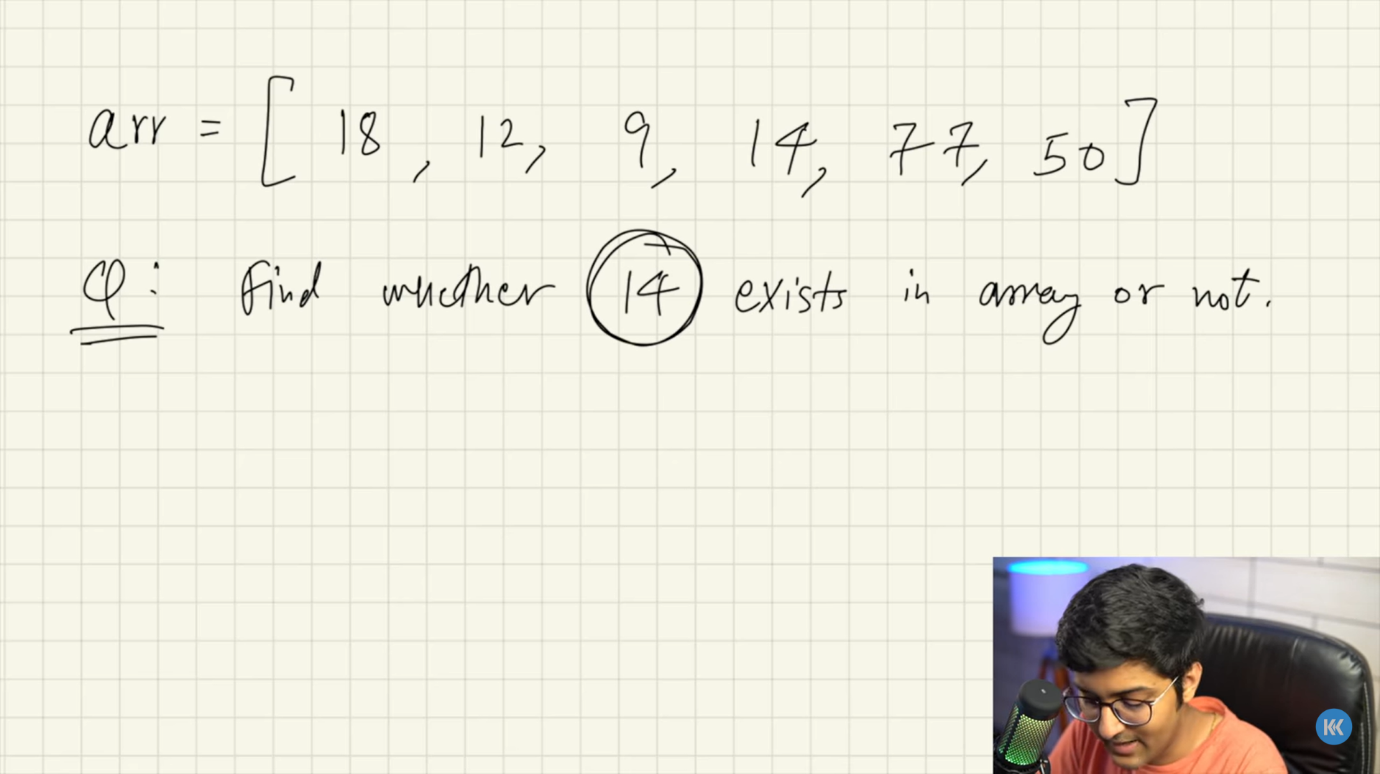 arr = [ 18, 12, 9, 14, 77, 50 ]
Q: Find whether 14 exists in array or not.
KK